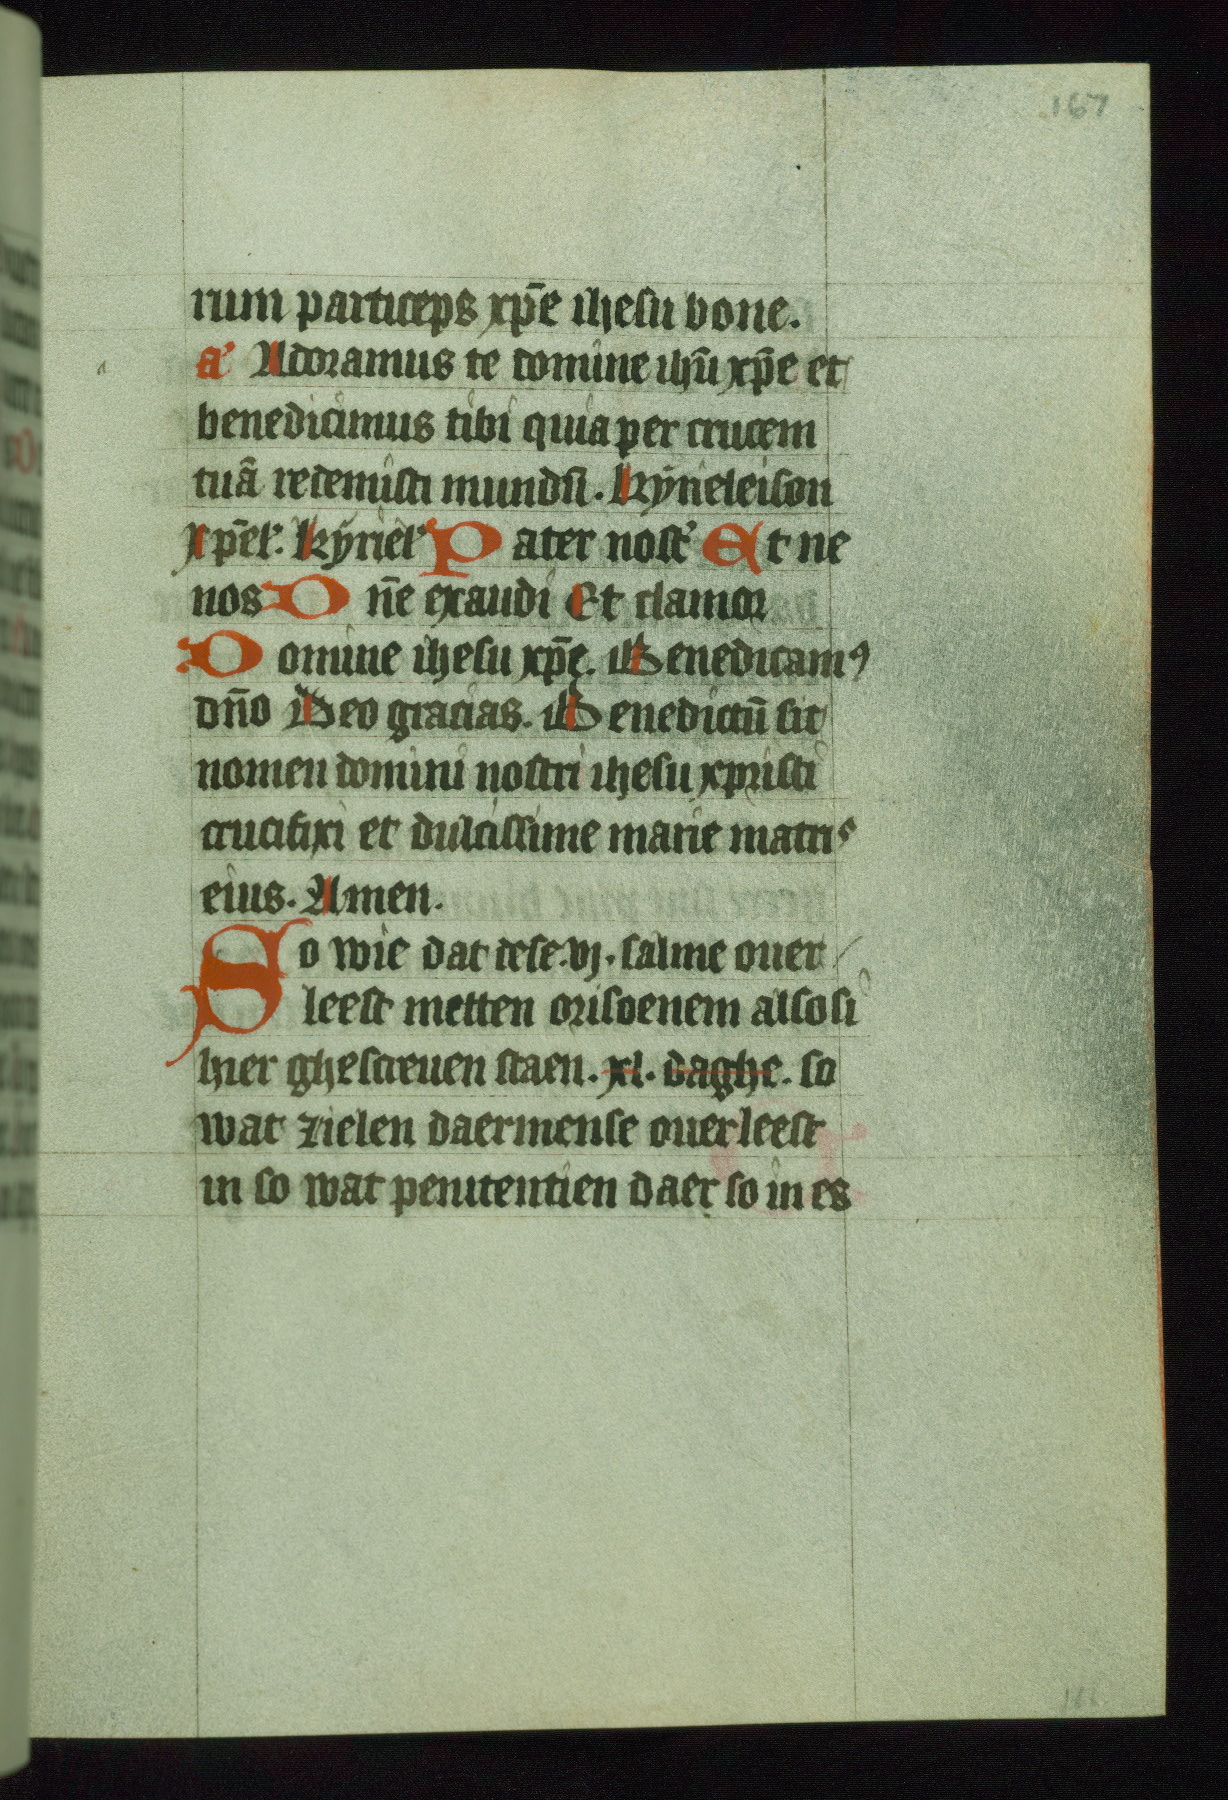 167
rum particeps xp̄e ihesu bone.
a' Adoramus te domine ihū xp̄e et
benedicimus tibi quia per crucem
tuā redemisti mundū. kyrieleison
xp̄el'. kyriel' Pater nost' Et ne
nos Dn̄e exaudi Et clamor
Domine ihesu xp̄e. Benedicamꝰ
dn̄o Deo gracias. Benedictū sit
nomen domini nostri ihesu xpristi
crucifixi et dulcissime marie matris
eius. Amen.
So wie dat dese .vj. salme ouer
leest metten orisoenem also si
hier ghescreuen staen. xl. daghe. so
wat zielen daermense ouerleest
in so wat penitentien daer so in es